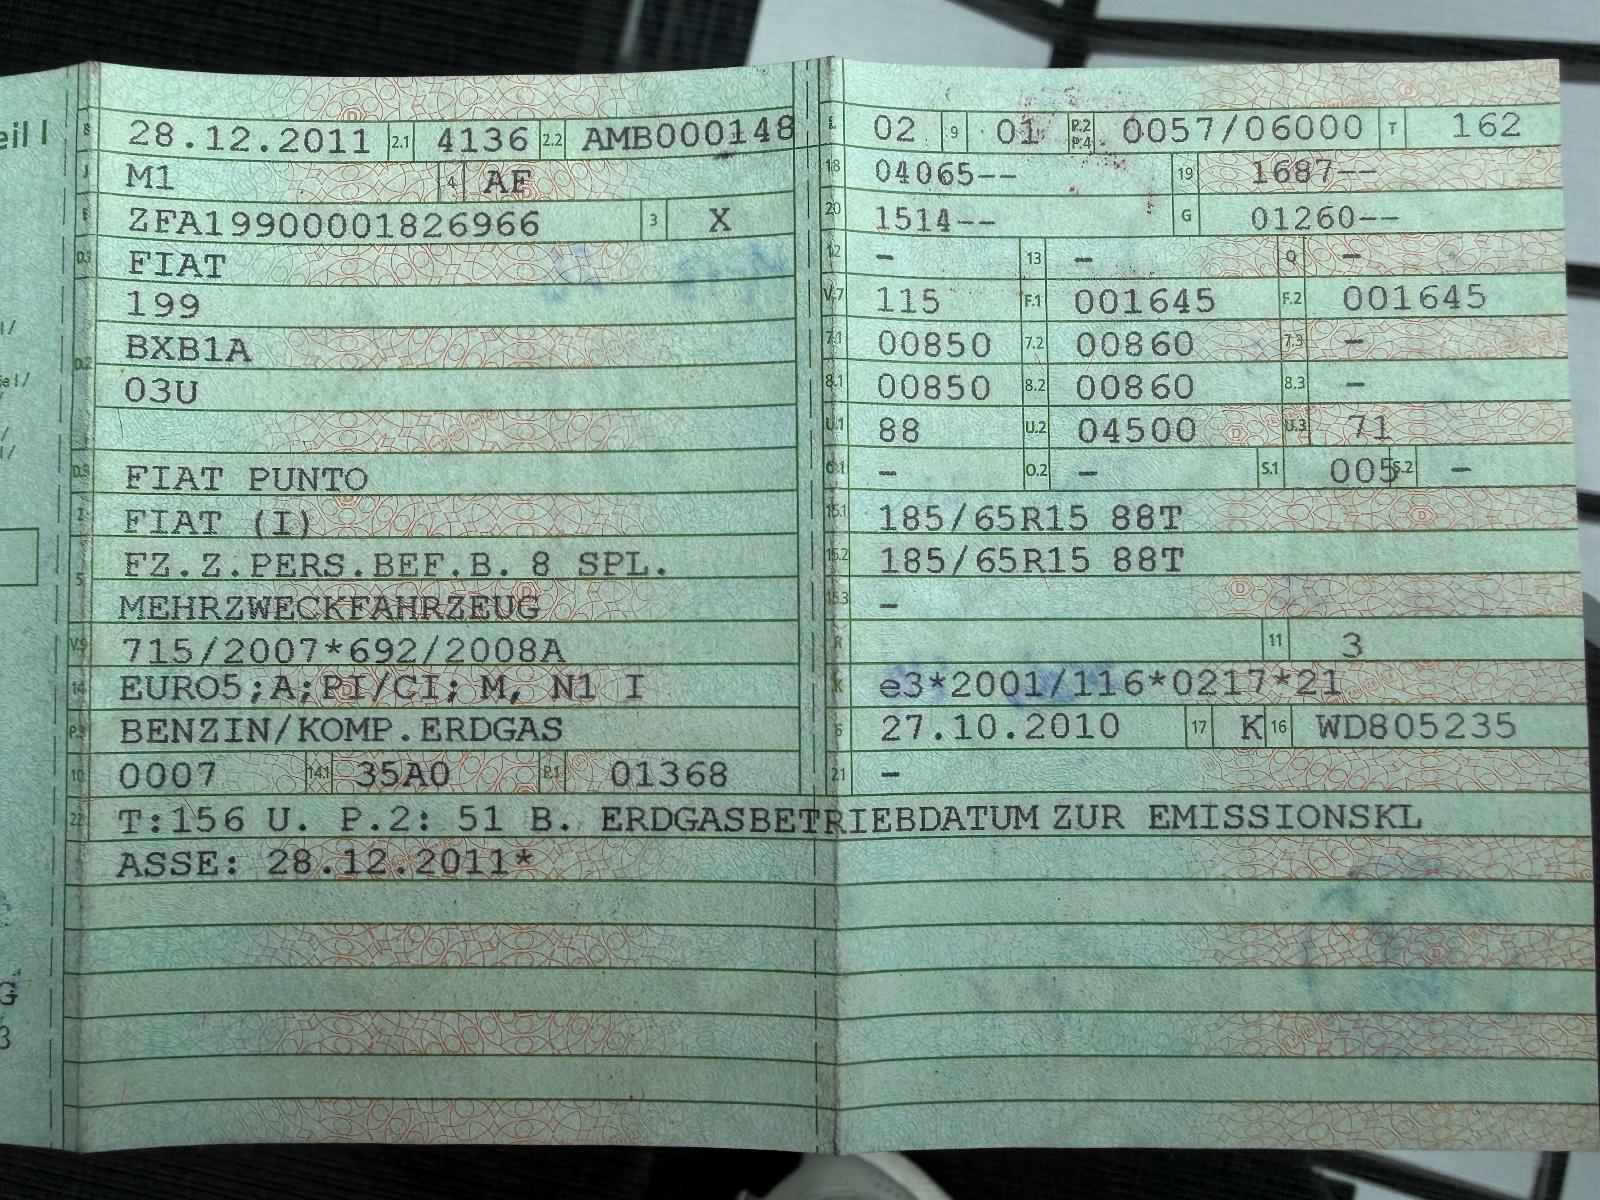 eil I
B 28.12.2011 2.1 4136 2.2 AMB000148
J M1 4 AF
E ZFA19900001826966 3 X
D.1 FIAT
199
D.2 BXB1A
03U
D.3 FIAT PUNTO
2 FIAT (I)
5 FZ.Z.PERS.BEF.B. 8 SPL.
MEHRZWECKFAHRZEUG
V.9 715/2007*692/2008A
14 EURO5;A;PI/CI; M, N1 I
P.3 BENZIN/KOMP.ERDGAS
10 0007 14.1 35A0 P.1 01368
L 02 9 01 P.2 P.4 0057/06000 T 162
18 04065-- 19 1687--
20 1514-- G 01260--
12 - 13 - Q -
V.7 115 F.1 001645 F.2 001645
7.1 00850 7.2 00860 7.3 -
8.1 00850 8.2 00860 8.3 -
U.1 88 U.2 04500 U.3 71
O.1 - O.2 - S.1 005 S.2 -
15.1 185/65R15 88T
15.2 185/65R15 88T
15.3 -
R 11 3
K e3*2001/116*0217*21
6 27.10.2010 17 K 16 WD805235
21 -
22 T:156 U. P.2: 51 B. ERDGASBETRIEBDATUM ZUR EMISSIONSKL
ASSE: 28.12.2011*